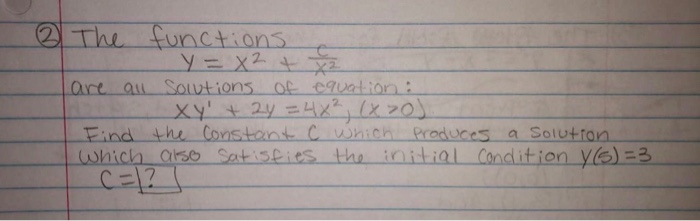 ② The functions
y = x² + c/x²
are all solutions of equation:
xy' + 2y = 4x², (x > 0)
Find the constant C which produces a solution
which also satisfies the initial condition y(5) = 3
C = ?